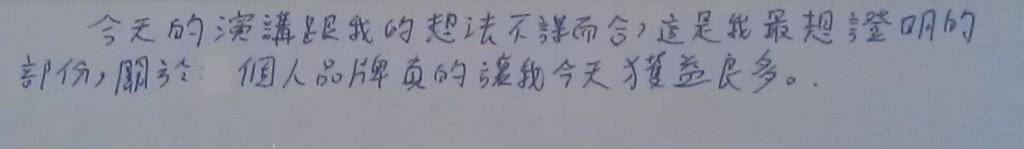 今天的演講跟我的想法不謀而合，這是我最想證明的
部份，關於 個人品牌真的讓我今天獲益良多。